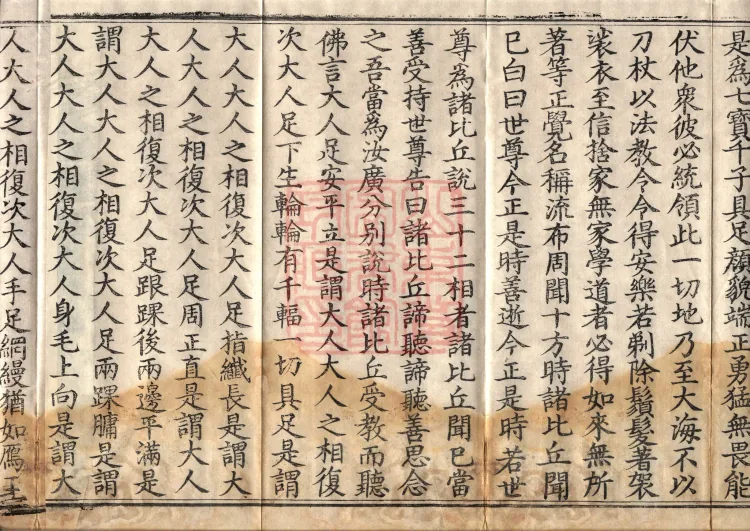 是為七寶千子具足顏貌端正勇猛無畏能
伏他眾彼必統領此一切地乃至大海不以
刀杖以法教令令得安樂若剃除鬚髮著袈
裟衣至信捨家無家學道者必得如來無所
著等正覺名稱流布周聞十方時諸比丘聞
已白曰世尊今正是時善逝今正是時若世
尊為諸比丘說三十二相者諸比丘聞已當
善受持世尊告曰諸比丘諦聽諦聽善思念
之吾當為汝廣分別說時諸比丘受教而聽
佛言大人足安平立是謂大人大人之相復
次大人足下生輪輪有千輻一切具足是謂
大人大人之相復次大人足指纖長是謂大
人大人之相復次大人足周正直是謂大人
大人之相復次大人足跟踝後兩邊平滿是
謂大人大人之相復次大人足兩踝𦟛是謂
大人大人之相復次大人身毛上向是謂大
人大人之相復次大人手足網縵猶如鴈王